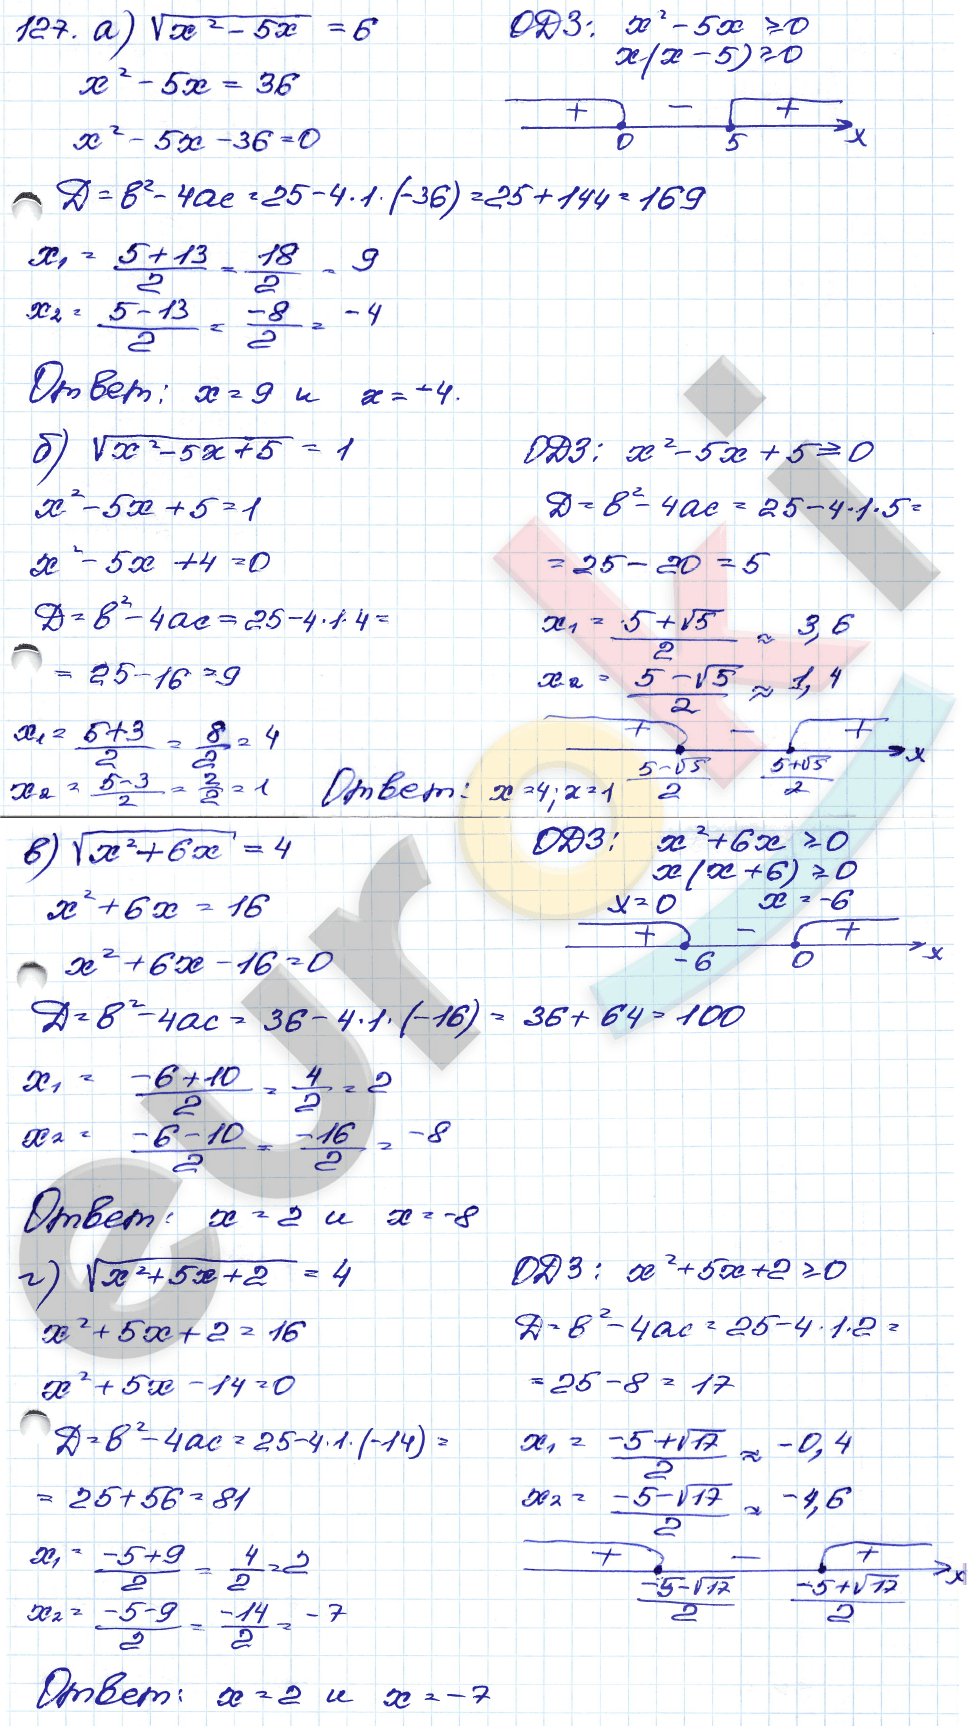 127. а) √(x² - 5x) = 6
ОДЗ: x² - 5x ≥ 0
x(x - 5) ≥ 0
x² - 5x = 36
+ - +
0 5 x
x² - 5x - 36 = 0
D = b² - 4ac = 25 - 4·1·(-36) = 25 + 144 = 169
x₁ = (5 + 13)/2 = 18/2 = 9
x₂ = (5 - 13)/2 = -8/2 = -4
Ответ: x = 9 и x = -4.
б) √(x² - 5x + 5) = 1
x² - 5x + 5 = 1
x² - 5x + 4 = 0
D = b² - 4ac = 25 - 4·1·4 =
= 25 - 16 = 9
x₁ = (5 + 3)/2 = 8/2 = 4
x₂ = (5 - 3)/2 = 2/2 = 1
ОДЗ: x² - 5x + 5 ≥ 0
D = b² - 4ac = 25 - 4·1·5 =
= 25 - 20 = 5
x₁ = (5 + √5)/2 ≈ 3,6
x₂ = (5 - √5)/2 ≈ 1,4
+ - +
(5 - √5)/2 (5 + √5)/2 x
Ответ: x = 4; x = 1
в) √(x² + 6x) = 4
x² + 6x = 16
x² + 6x - 16 = 0
ОДЗ: x² + 6x ≥ 0
x(x + 6) ≥ 0
x = 0 x = -6
+ - +
-6 0 x
D = b² - 4ac = 36 - 4·1·(-16) = 36 + 64 = 100
x₁ = (-6 + 10)/2 = 4/2 = 2
x₂ = (-6 - 10)/2 = -16/2 = -8
Ответ: x = 2 и x = -8
г) √(x² + 5x + 2) = 4
x² + 5x + 2 = 16
x² + 5x - 14 = 0
D = b² - 4ac = 25 - 4·1·(-14) =
= 25 + 56 = 81
x₁ = (-5 + 9)/2 = 4/2 = 2
x₂ = (-5 - 9)/2 = -14/2 = -7
ОДЗ: x² + 5x + 2 ≥ 0
D = b² - 4ac = 25 - 4·1·2 =
= 25 - 8 = 17
x₁ = (-5 + √17)/2 ≈ -0,4
x₂ = (-5 - √17)/2 ≈ -4,6
+ - +
(-5 - √17)/2 (-5 + √17)/2 x
Ответ: x = 2 и x = -7
euroki